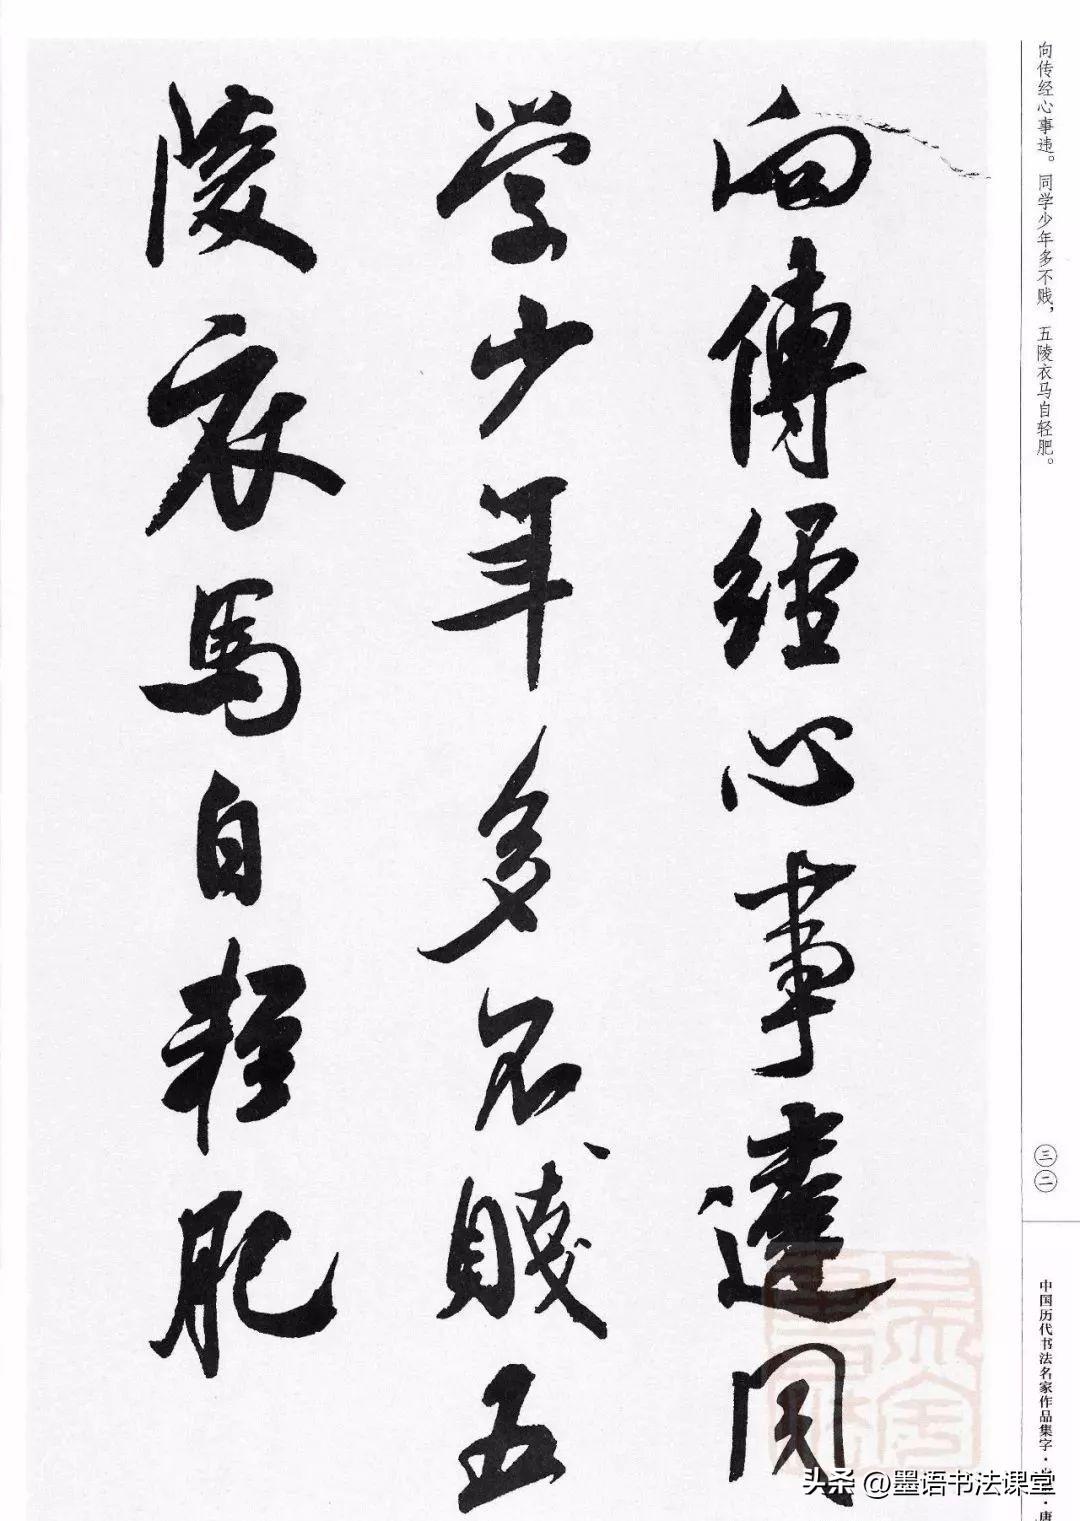 向傳經心事違同
学少年多不賤五
陵衣馬自輕肥
向传经心事违。同学少年多不贱，五陵衣马自轻肥。
三二
中国历代书法名家作品集字·
唐
头条 @墨语书法课堂